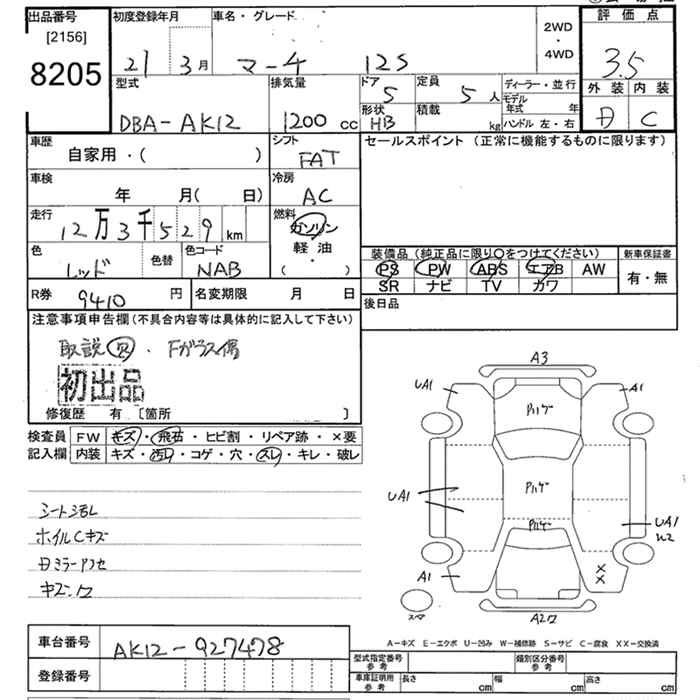 出品番号
[2156]
8205
初度登録年月
21 3月
車名・グレード
マーチ 12S
2WD
・
4WD
評価点
3.5
外装 内装
C
型式
DBA-AK12
排気量
1200 cc
ドア
5
形状
HB
定員
5 人
積載
kg
ディーラー・並行
モデル
年式 年
ハンドル 左・右
車歴
自家用・( )
シフト
FAT
セールスポイント (正常に機能するものに限ります)
車検
年 月( 日)
冷房
AC
走行
12万3千529 km
燃料
ガソリン
軽油
( )
色
レッド
色替
色コード
NAB
装備品(純正品に限り○をつけてください)
PS PW ABS エアB AW
SR ナビ TV カワ
新車保証書
有・無
R券
9410 円
名変期限 月 日
後日品
注意事項申告欄(不具合内容等は具体的に記入して下さい)
取説欠・Fガラス傷
初出品
修復歴 有 〔箇所 〕
検査員
記入欄
FW キズ・飛石・ヒビ割・リペア跡・×要
内装 キズ・汚レ・コゲ・穴・スレ・キレ・破レ
シート汚レ
ホイルCキズ
A3
UA1
A1
Pハゲ
UA1
Pハゲ
Pハゲ
UA1
W2
A1
××
スマ
A2ワ
A-キズ E-エクボ U-凹み W-補修跡 S-サビ C-腐食 XX-交換済
車台番号
AK12-927478
登録番号
型式指定番号
参考
類別区分番号
参考
車庫証明用
参考
長さ cm
幅 cm
高さ cm